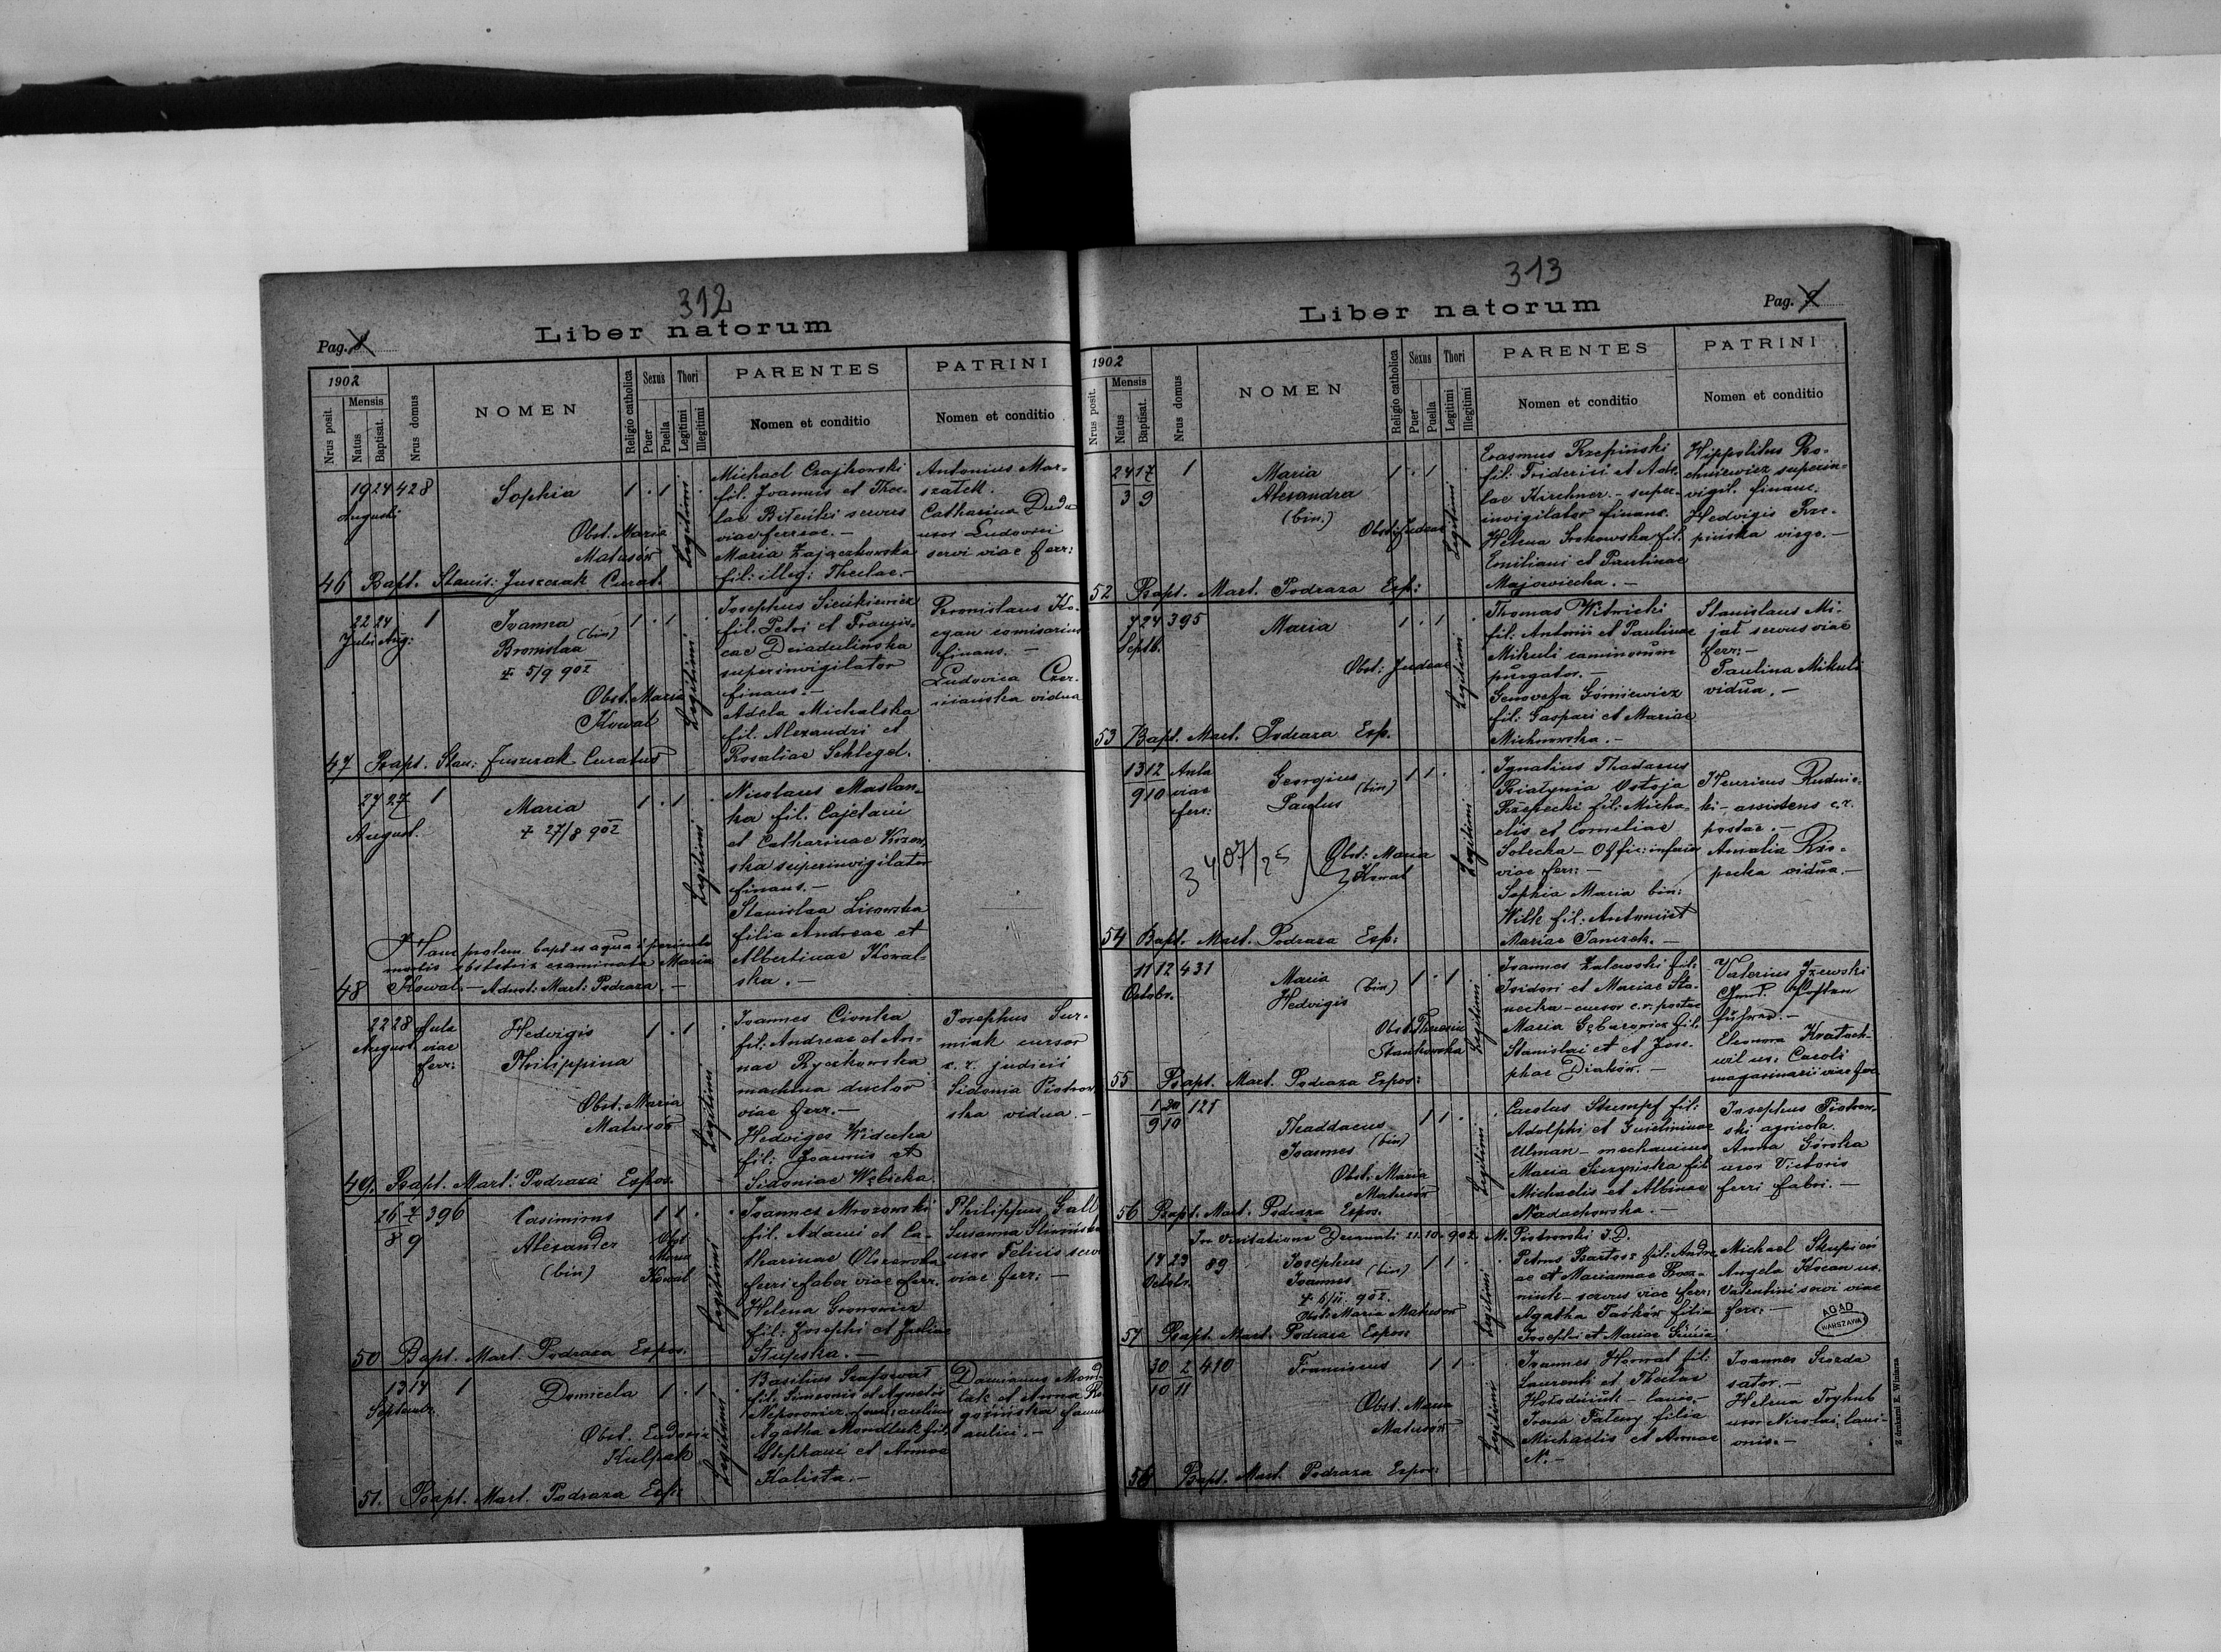 312
Liber natorum
Pag.
1902
Nrus posit.
Mensis
Natus
Baptisat.
Nrus domus
NOMEN
Religio catholica
Sexus
Puer
Puella
Thori
Legitimi
Illegitimi
PARENTES
Nomen et conditio
PATRINI
Nomen et conditio
19 24 428
Augusti
Sophia
1 . 1 .
Legitimi
Obst. Maria
Matusów
Michael Czajkowski
fil. Joannis et Thec-
lae servus
viae ferreae. -
Maria Zajączkowska
fil: illeg: Theclae. -
Antonius Mar-
szałek.
Catharina Duda
uxor Ludovici
servi viae ferr:
46 Bapt. Stanis: Juszczak Curat.
22 24 1
Julii Aug:
Joanna
(bin)
Bronislaa
+ 5/9 902
1 . 1 .
Legitimi
Obst. Maria
Kowal
Josephus Sieńkiewicz
fil. Petri et Francis-
cae Dziadulińska
superinvigilator
finans. -
Adela Michalska
fil. Alexandri et
Rosaliae Schlegel.
Bronislaus Ko-
cyan comisarius
finans. -
Ludovica Czer-
niańska vidua
47 Bapt. Stan: Juszczak Curatus
27 27 1
August.
Maria
+ 27/8 902
1 . 1 .
Legitimi
Nicolaus Maslan-
ka fil. Cajetani
et Catharinae
superinvigilator
finans. -
Stanislaa Lisowska
filia Andreae et
Albertinae Kowal-
ska. -
Hanc prolem bapt. ex aqua periculo
mortis obstetrix examinata Maria
48 Kowal. - Adnot: Mart: Podraza. -
22 28 Aula
August. viae
ferr:
Hedvigis
Philippina
1 . 1 .
Legitimi
Obst. Maria
Matusów
Joannes Cionka
fil. Andreae et An-
nae Rychowska
machina ductor
viae ferr. -
Hedviges Widecka
fil: Joannis et
Sidoniae Wębicka.
Josephus Sur-
miak cursor
c. r. judicii
Sidonia Piotrow-
ska vidua. -
49. Bapt. Mart: Podraza Expos.
26 7 396
8 9
Casimirus
Alexander
(bin)
1 1 .
Legitimi
Obst
Maria
Kowal
Joannes Mrozowski
fil. Adami et Ca-
tharinae Olszewska
ferri faber viae ferr.
Helena Gronowicz
fil: Josephi et Juliae
Słupska. -
Philippus Gall
Susanna
uxor Felicis servi
viae ferr: -
50 Bapt. Mart. Podraza Expos.
13 14 1
Septembr.
Domicela
1 . 1 .
Legitimi
Obst. Eudoxia
Kulpak
Basilius
fil. Simeonis et Agnetis
aulicus
Agatha Mondlak fil.
Stephani et Annae
Kalista. -
Damianus Mond-
lak et Anna
aulici. -
51. Bapt. Mart. Podraza Exp:
313
Liber natorum
Pag.
1902
Nrus posit.
Mensis
Natus
Baptisat.
Nrus domus
NOMEN
Religio catholica
Sexus
Puer
Puella
Thori
Legitimi
Illegitimi
PARENTES
Nomen et conditio
PATRINI
Nomen et conditio
24 17 1
3 9
Maria
Alexandra
(bin.)
1 . 1
Legitimi
Obst: Judaea
Erasmus Rzepiński
fil: Friderici et Ade-
lae Kirchner. - super-
invigilator financ.
Helena Srokowska fil.
Emiliani et Paulinae
Majowiecka. -
Hippolitus Ro-
chniewicz superin-
vigil. financ.
Hedvigis Rze-
pińska virgo. -
52 Bapt. Mart. Podraza Exp:
7 24 395
Septb.
Maria
1 . 1 .
Legitimi
Obst: Judaea
Thomas Witwicki
fil: Antonii et Paulinae
Mikuli caminorum
purgator. -
Genovefa Górniewicz
fil: Gaspari et Mariae
Michnowska. -
Stanislaus Mi-
jał servus viae
ferr: -
Paulina Mikuli
vidua. -
53 Bapt. Mart. Podraza Exp.
13 12 Aula
9 10 viae
ferr:
Georgius
(bin)
Paulus
1 1 .
Legitimi
3407/25
Obst: Maria
Kowal
Ignatius Thadaeus
Bialynia Ostoja
Rzepecki fil: Micha-
elis et Corneliae
Solecka - Offic: infaior
viae ferr: -
Sophia Maria bin:
Wilk fil. Antonii et
Mariae Janczek. -
Henricus Rudnic-
ki - assistens c. r.
postae. -
Amalia Rze-
pecka vidua. -
54 Bapt. Mart. Podraza Exp:
11 12 431
Octobr.
Maria
(bin)
Hedvigis
1 . 1
Legitimi
Obst. Theresia
Stankowska
Joannes Zalewski fil:
Isidori et Mariae Sta-
necka - cursor c. r. postae
Maria Gębarowicz fil:
Stanislai et et Jose-
phae Diaków. -
Valerius Izewski
führer. -
Eleonora Kratoch-
wil ux: Caroli
magasinarii viae fer
55 Bapt. Mart. Podraza Expos:
1 20 121
9 10
Thaddaeus
(bin)
Joannes
1 1 .
Legitimi
Obst: Maria
Matusów
Carolus Stumpf fil:
Adolphi et Guielminae
Ulman - mechanicus
Maria fil
Michaelis et Albinae
Nadachowska. -
Josephus Piotrow-
ski agricola.
Anna Górska
uxor Victoris
ferri fabri. -
56 Bapt. Mart. Podraza Expos.
In visitatione Decanali 21.10.902. M. Piotrowski J.D.
17 23 89
Octobr.
Josephus
(bin)
Joannes
+ 6/11. 902.
Obst: Maria Matusów
1 1 .
Legitimi
Petrus Bartosz fil: Andre-
ae et Mariannae
servus viae ferr:
Agatha filia
Josephi et Mariae
Michael Skupień
Angela Kocan ux.
Valentini servi viae
ferr: -
AGAD
WARSZAWA
57 Bapt. Mart. Podraza Expos:
30 2 410
10 11
Franciscus
1 1
Legitimi
Obst. Maria
Matusów
Joannes Horwat fil:
Laurenti et Theclae
lanio. -
Irena Patevy filia
Michaelis et Annae
N. -
Joannes
sator. -
Helena Tryhub
uxor Nicolai, lani-
onis. -
58 Bapt. Mart. Podraza Expos:
Z drukarni E. Winiarza